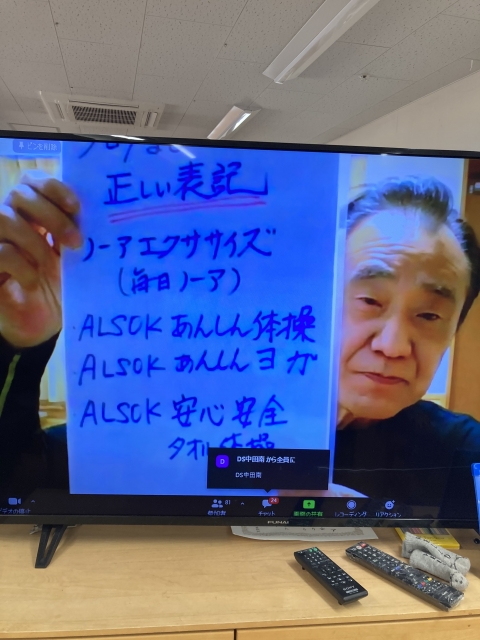 ピンを削除
正しい表記
ノーアエクササイズ
(毎日ノーア)
ALSOK あんしん体操
ALSOK あんしんヨガ
ALSOK 安心安全
タオル体操
DS中田南 から全員に
D
DS中田南
81
24
参加者
チャット
画面の共有
レコーディング
リアクション
FUNAI
SONY